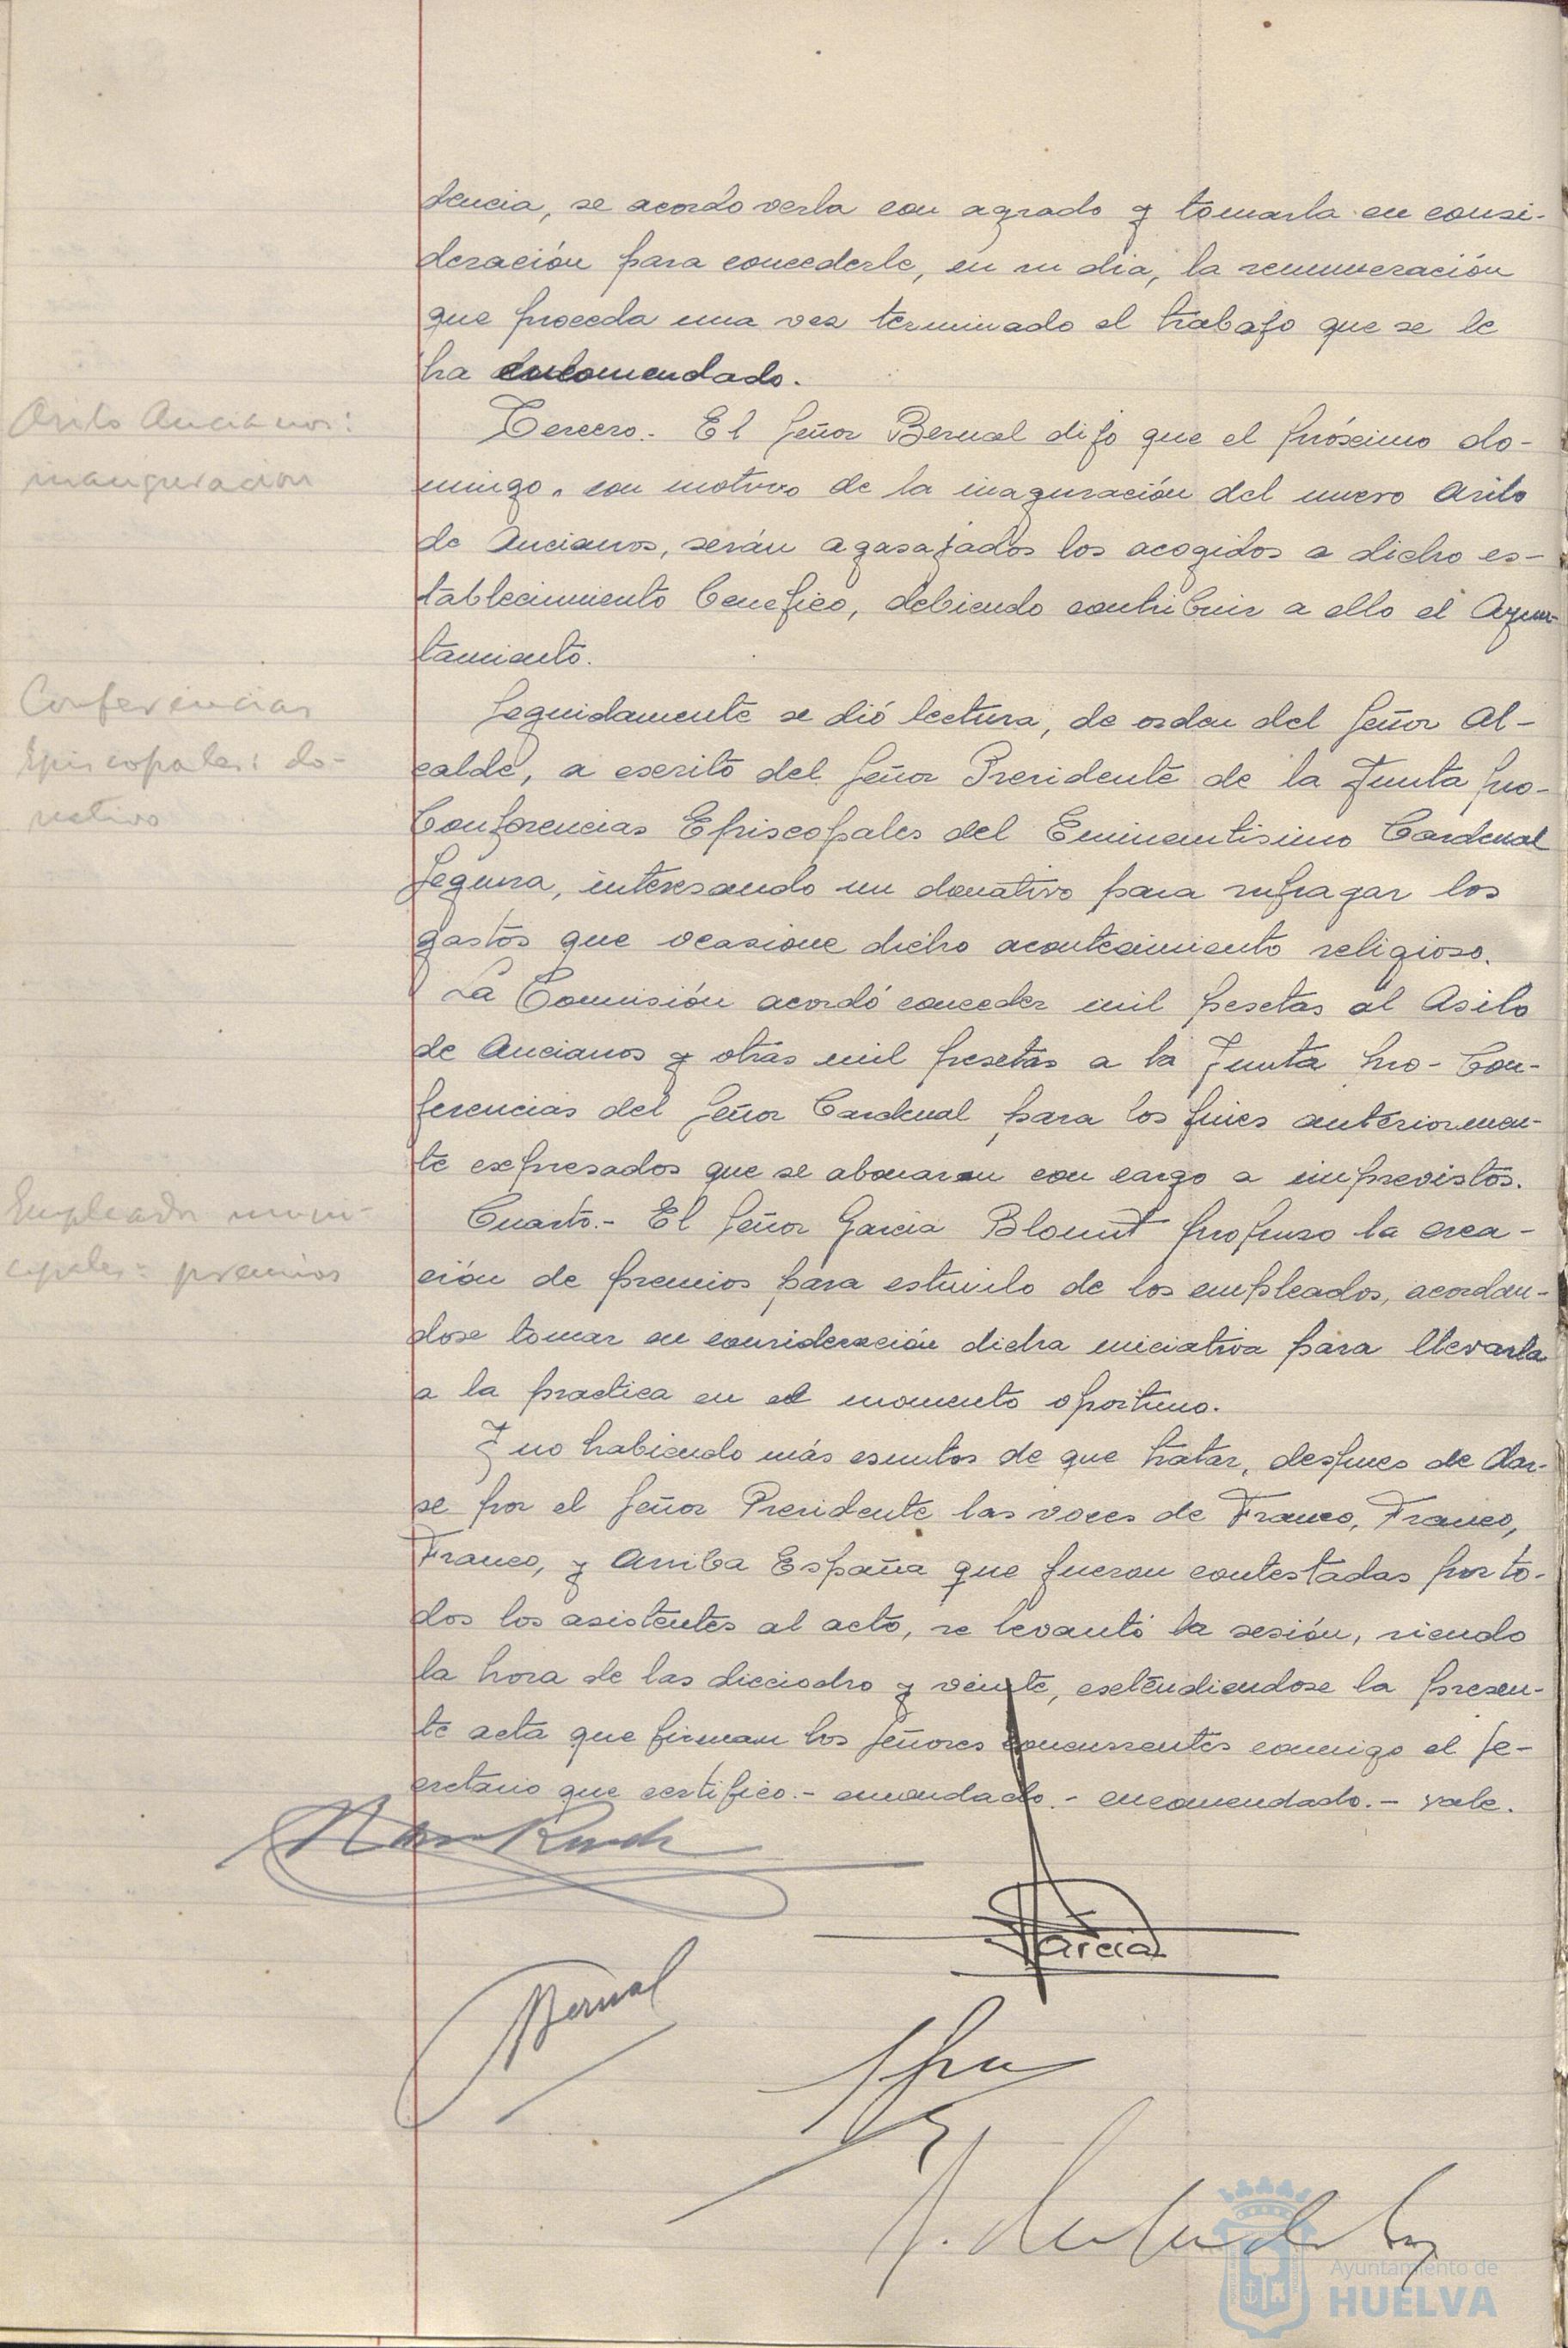 dencia, se acordo verla con agrado y tomarla en consi-
deración para concederle, en su dia, la remuneración
que proceda una vez terminado el trabajo que se le
ha encomendado.
Asilo Ancianos:
inauguracion
Tercero.- El Señor Bernal dijo que el próximo do-
mingo, con motivo de la inaguración del nuevo Asilo
de Ancianos, serán agasajados los acogidos a dicho es-
tablecimiento benefico, debiendo contribuir a ello el Ayun-
tamiento.
Conferencias
Episcopales: do-
nativo
Seguidamente se dió lectura, de orden del Señor Al-
calde, a escrito del Señor Presidente de la Junta pro-
Conferencias Episcopales del Eminentisimo Cardenal
Segura, interesando un donativo para sufragar los
gastos que ocasione dicho acontecimiento religioso.
La Comisión acordó conceder mil pesetas al Asilo
de Ancianos y otras mil pesetas a la Junta pro-Con-
ferencias del Señor Cardenal para los fines anteriormen-
te expresados que se abonaran con cargo a imprevistos.
Empleados muni-
cipales: premios
Cuarto.- El Señor Garcia Blount propuso la crea-
ción de premios para estimilo de los empleados, acordan-
dose tomar en consideración dicha iniciativa para llevarla
a la practica en el momento oportuno.
Y no habiendo más asuntos de que tratar, despues de dar-
se por el Señor Presidente las voces de Franco, Franco,
Franco, y Arriba España que fueron contestadas por to-
dos los asistentes al acto, se levantó la sesión, siendo
la hora de las dieciocho y veinte, extendiendose la presen-
te acta que firman los Señores concurrentes conmigo el Se-
cretario que certifico.- enmendado.- encomendado.- vale.
Garcia
Bernal
Ayuntamiento de
HUELVA